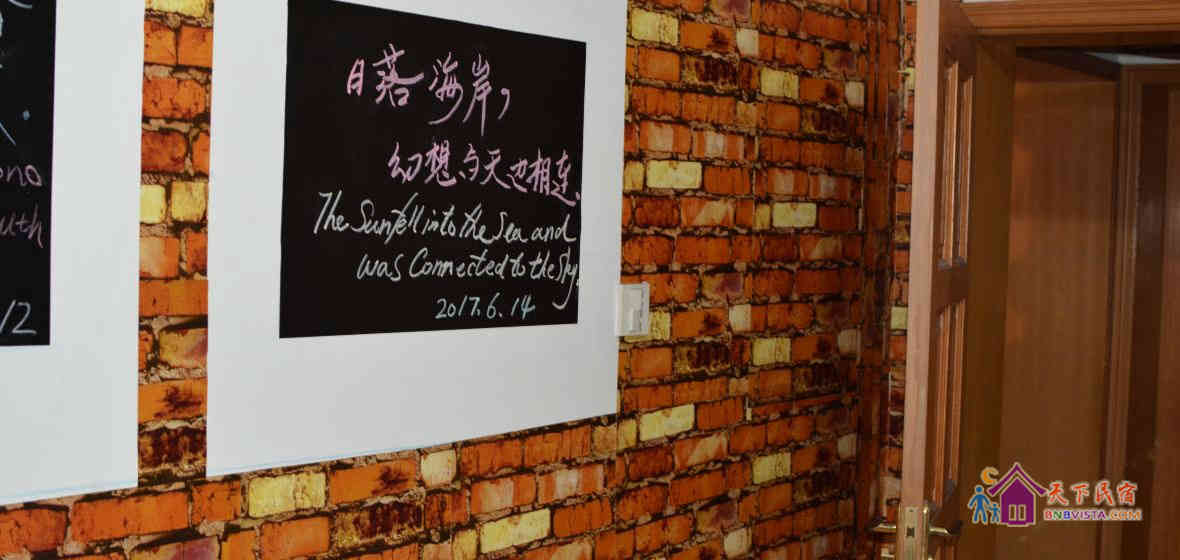 ono
uth
12
日落海岸，
幻想、与天边相连、
The Sunfell into the Sea and
was Connected to the Sky.
2017.6.14
天下民宿
BNBVISTA.COM